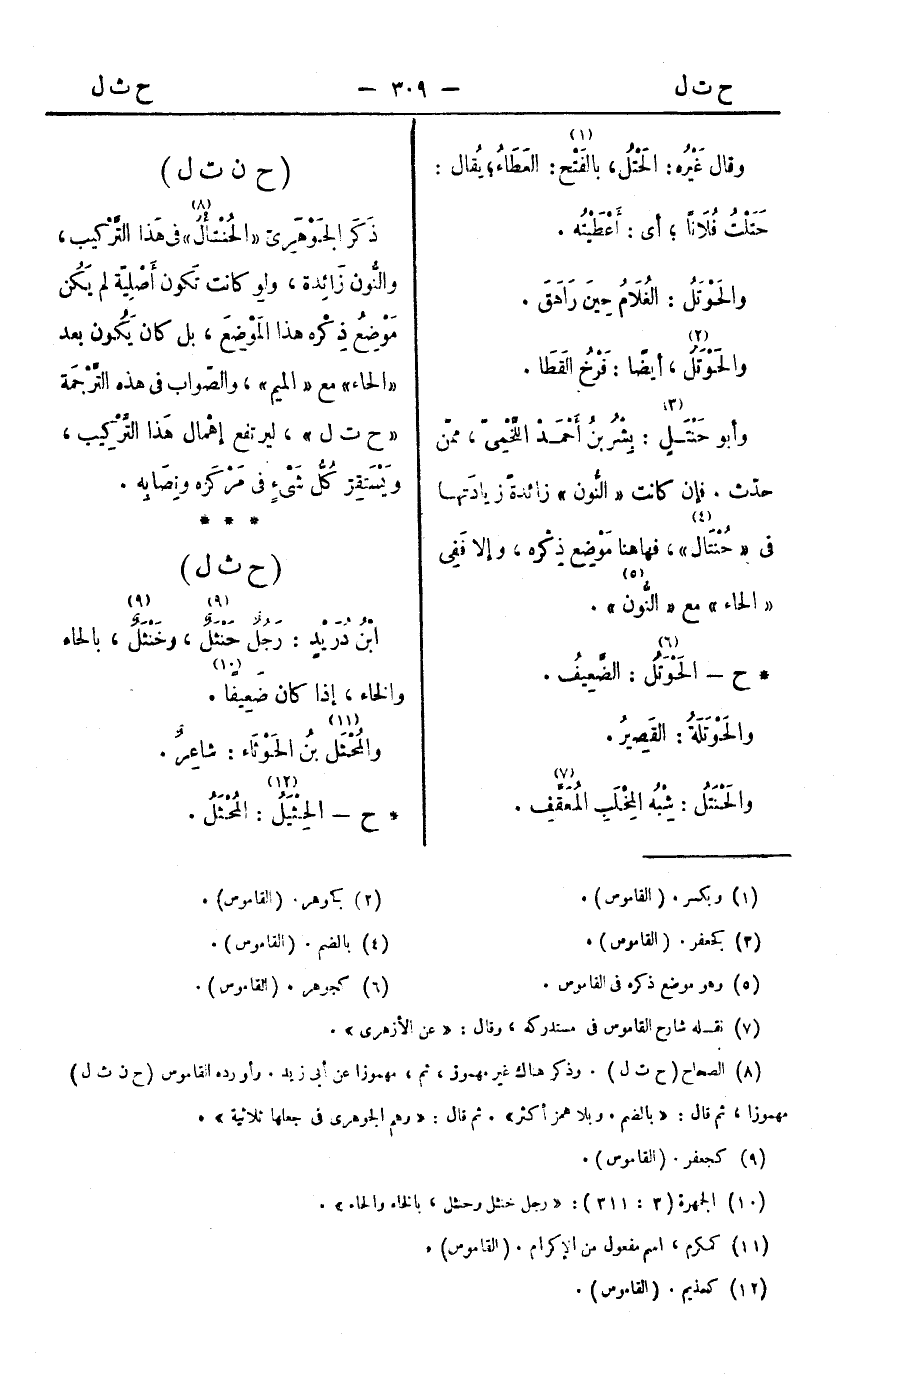 ح ت ل
— ٣٠٩ —
ح ث ل
وقال غَيْرُه : الحَتْلُ(١) ، بالفَتْح : العَطَاءُ ؛ يُقال :
حَتَلْتُ فُلَاناً ؛ أى : أَعْطَيْتُه .
والحَوْتَلُ : الغُلَامُ حِينَ رَاهَقَ .
والحَوْتَلُ(٢) ، أيضًا : فَرْخُ القَطَا .
وأبو حَنْتَـلٍ(٣) : بِشْرُ بنُ أَحْمَـدْ اللَّخْمِىّ ، ممّن
حدّث . فإن كانت « النُّون » زائدةً زيادَتهـا
فى « حُنْتَال(٤) » ، فهاهنا مَوْضِع ذِكْرِه ، وإلا فَفِى
« الحاء » مع « النُّون(٥) » .
* ح — الحَوْتَلُ(٦) : الضَّعِيفُ .
والحَوْتَلَةُ : القَصِيرُ .
والحَنْتَلُ(٧) : شِبْهُ المِخْلَبِ المُعَقَّفِ .
( ح ن ت ل )
ذَكَرَ الجَوْهَرِىّ « الحُنْتَأْل(٨) » فى هَذا التَّرْكيب ،
والنُّون زَائِدة ، ولو كانت تَكون أَصْلِيّة لم يَكُن
مَوْضِعُ ذِكْره هذا المَوْضِعَ ، بل كان يَكُون بعد
«الحاء» مع « الميم » ، والصّواب فى هذه التَّرْجَمة
« ح ت ل » ، ليرتفع إهْمال هَذا التَّرْكيب ،
ويَسْتَقِرّ كُلُّ شَىْءٍ فى مَرْكَزه ونِصَابِه .
* * *
( ح ث ل )
ابْنُ دُرَيْدٍ : رَجُلٌ حَنْثَلٌ(٩) ، وخَنْثَلٌ(٩) ، بالحاء
والخاء ، إذا كان ضَعِيفًا(١٠) .
والمُحْثَل(١١) بنُ الحَوْثَاء : شاعِرٌ .
* ح — الحِثْيَلُ(١٢) : المُحْثَلُ .
(١) ويكسر . ( القاموس ) .
(٢) كجوهر . ( القاموس ) .
(٣) كجعفر . ( القاموس ) .
(٤) بالضم . ( القاموس ) .
(٥) وهو موضع ذكره فى القاموس .
(٦) كجوهر . ( القاموس ) .
(٧) نقـله شارح القاموس فى مستدركه ، وقال : « عن الأزهرى » .
(٨) الصحاح ( ح ت ل ) . وذكر هناك غير مهموز ، ثم ، مهموزا عن أبى زيد . وأورده القاموس ( ح ن ث ل )
مهموزا ، ثم قال : « بالضم . وبلا همز أكثر » . ثم قال : « وهم الجوهرى فى جعلها ثلاثية » .
(٩) كجعفر . ( القاموس ) .
(١٠) الجمهرة ( ٣ : ٣١١ ) : « رجل خنثل وحنثل ، بالخاء والحاء » .
(١١) كمكرم ، اسم مفعول من الإكرام . ( القاموس ) .
(١٢) كحذيم . ( القاموس ) .